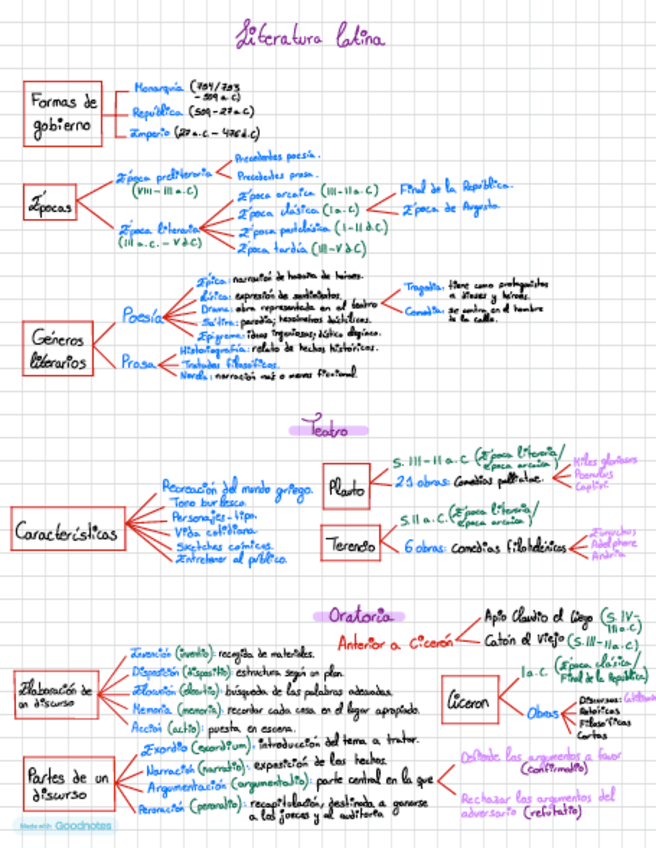 Literatura latina
Formas de
gobierno
Monarquía (754/753
- 509 a.C)
República (509-27 a.C)
Imperio (27 a.C - 476 d.C)
Épocas
Época preliteraria
(VIII - III a.C)
Precedentes poesía.
Precedentes prosa.
Época literaria
(III a.C. - V d.C)
Época arcaica (III-II a.C)
Época clásica (I a.C)
Época postclásica (I-II d.C)
Época tardía (III-V d.C)
Final de la República.
Época de Augusto.
Géneros
literarios
Poesía
Épica: narración de hazaña de héroes.
Lírica: expresión de sentimientos.
Drama: obra representada en el teatro
Sátira: parodia; hexámetros dactílicos.
Epigrama: ideas ingeniosas; dístico elegíaco.
Tragedia: tiene como protagonistas
a dioses y héroes.
Comedia: se centra en el hombre
de la calle.
Prosa
Historiografía: relato de hechos históricos.
Tratados filosóficos.
Novela: narración más o menos ficcional.
Teatro
Características
Recreación del mundo griego.
Tono burlesco.
Personajes-tipo.
Vida cotidiana.
Sketches cómicos.
Entretener al público.
Plauto
S. III-II a.C (Época literaria/
época arcaica)
21 obras: Comedias palliatae.
Miles gloriosus
Poenulus
Captivi
Terencio
S. II a.C. (Época literaria/
época arcaica)
6 obras: Comedias filohelénicas
Adelphoe
Andria
Oratoria
Anterior a Cicerón
Apio Claudio el Ciego (S. IV-
III a.C)
Catón el Viejo (S. III-II a.C)
Elaboración de
un discurso
Invención (inventio): recogida de materiales.
Disposición (dispositio): estructura según un plan.
Elocución (elocutio): búsqueda de las palabras adecuadas.
Memoria (memoria): recordar cada cosa en el lugar apropiado.
Acción (actio): puesta en escena.
Cicerón
I a.C. (Época clásica/
Final de la República)
Obras
Discursos:
Retóricas
Filosóficas
Cartas
Partes de un
discurso
Exordio (exordium): introducción del tema a tratar.
Narración (narratio): exposición de los hechos.
Argumentación (argumentatio): parte central en la que
Peroración (peroratio): recapitulación, destinada a ganarse
a los jueces y al auditorio
Defiende los argumentos a favor
(confirmatio)
Rechazar los argumentos del
adversario (refutatio)
Made with Goodnotes